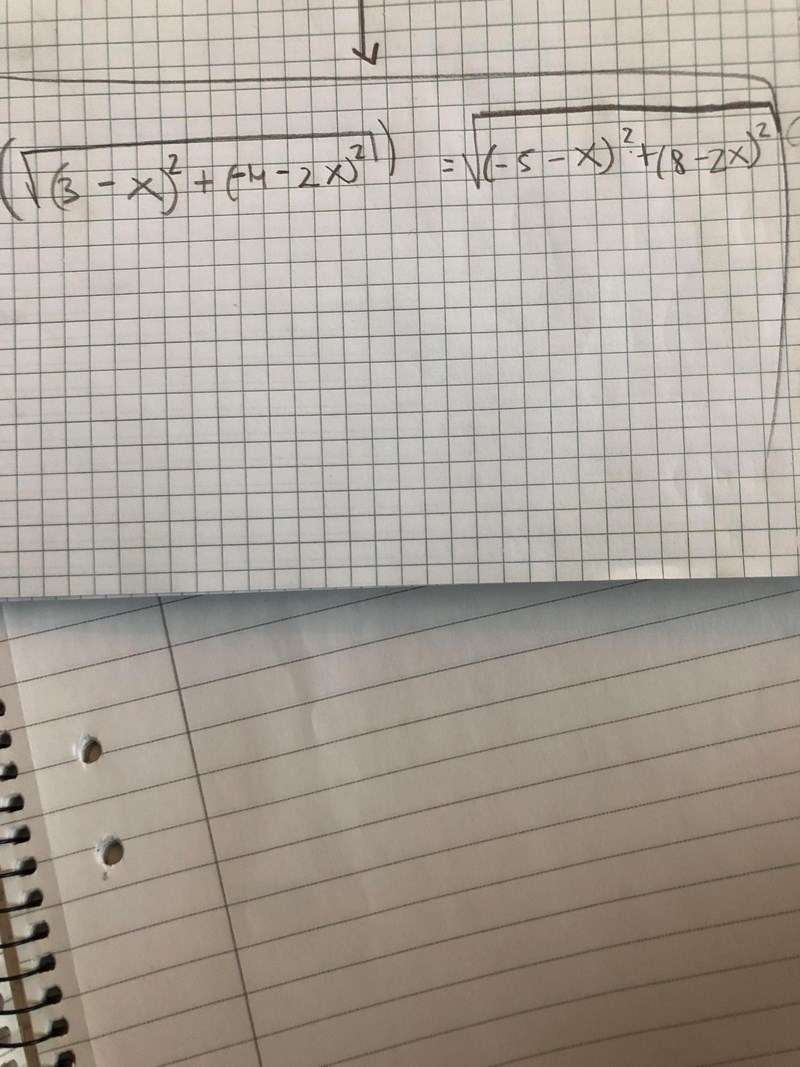 (√((3 - x)² + (-4 - 2x)²)) = √((-5 - x)² + (8 - 2x)²)